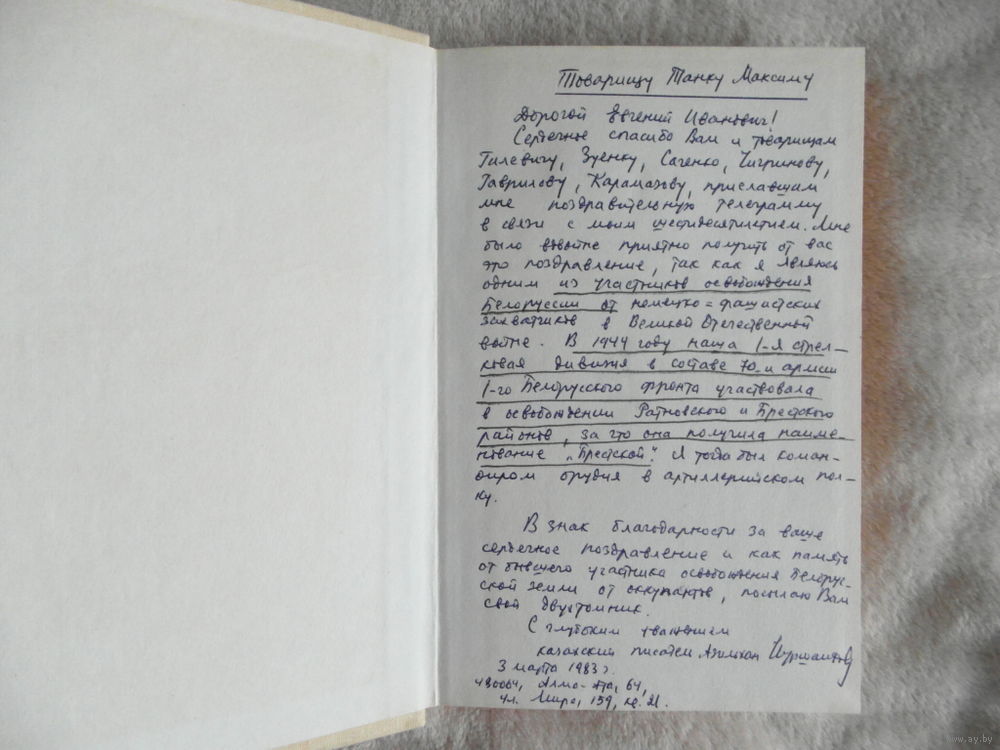 Товарищу Танку Максиму
Дорогой Евгений Иванович!
Сердечное спасибо Вам и товарищам
Гилевичу, Зуенку, Саченко, Чигринову,
Гаврилову, Карамазову, приславшим
мне поздравительную телеграмму
в связи с моим шестидесятилетием. Мне
было вдвойне приятно получить от вас
это поздравление, так как я являюсь
одним из участников освобождения
Белоруссии от немецко=фашистских
захватчиков в Великой Отечественной
войне. В 1944 году наша 1-я стрел-
ковая дивизия в составе 70-й армии
1-го Белорусского фронта участвовала
в освобождении Ратновского и Брестского
районов, за что она получила наиме-
нование „Брестской". Я тогда был коман-
диром орудия в артиллерийском пол-
ку.
В знак благодарности за ваше
сердечное поздравление и как память
от бывшего участника освобождения Белорус-
ской земли от оккупантов, посылаю Вам
свой двухтомник.
С глубоким уважением
казахский писатель Азильхан Нуршаихов
3 марта 1983 г.
480064, Алма-Ата, 64,
ул. Мира, 159, кв. 21.
www.ay.by